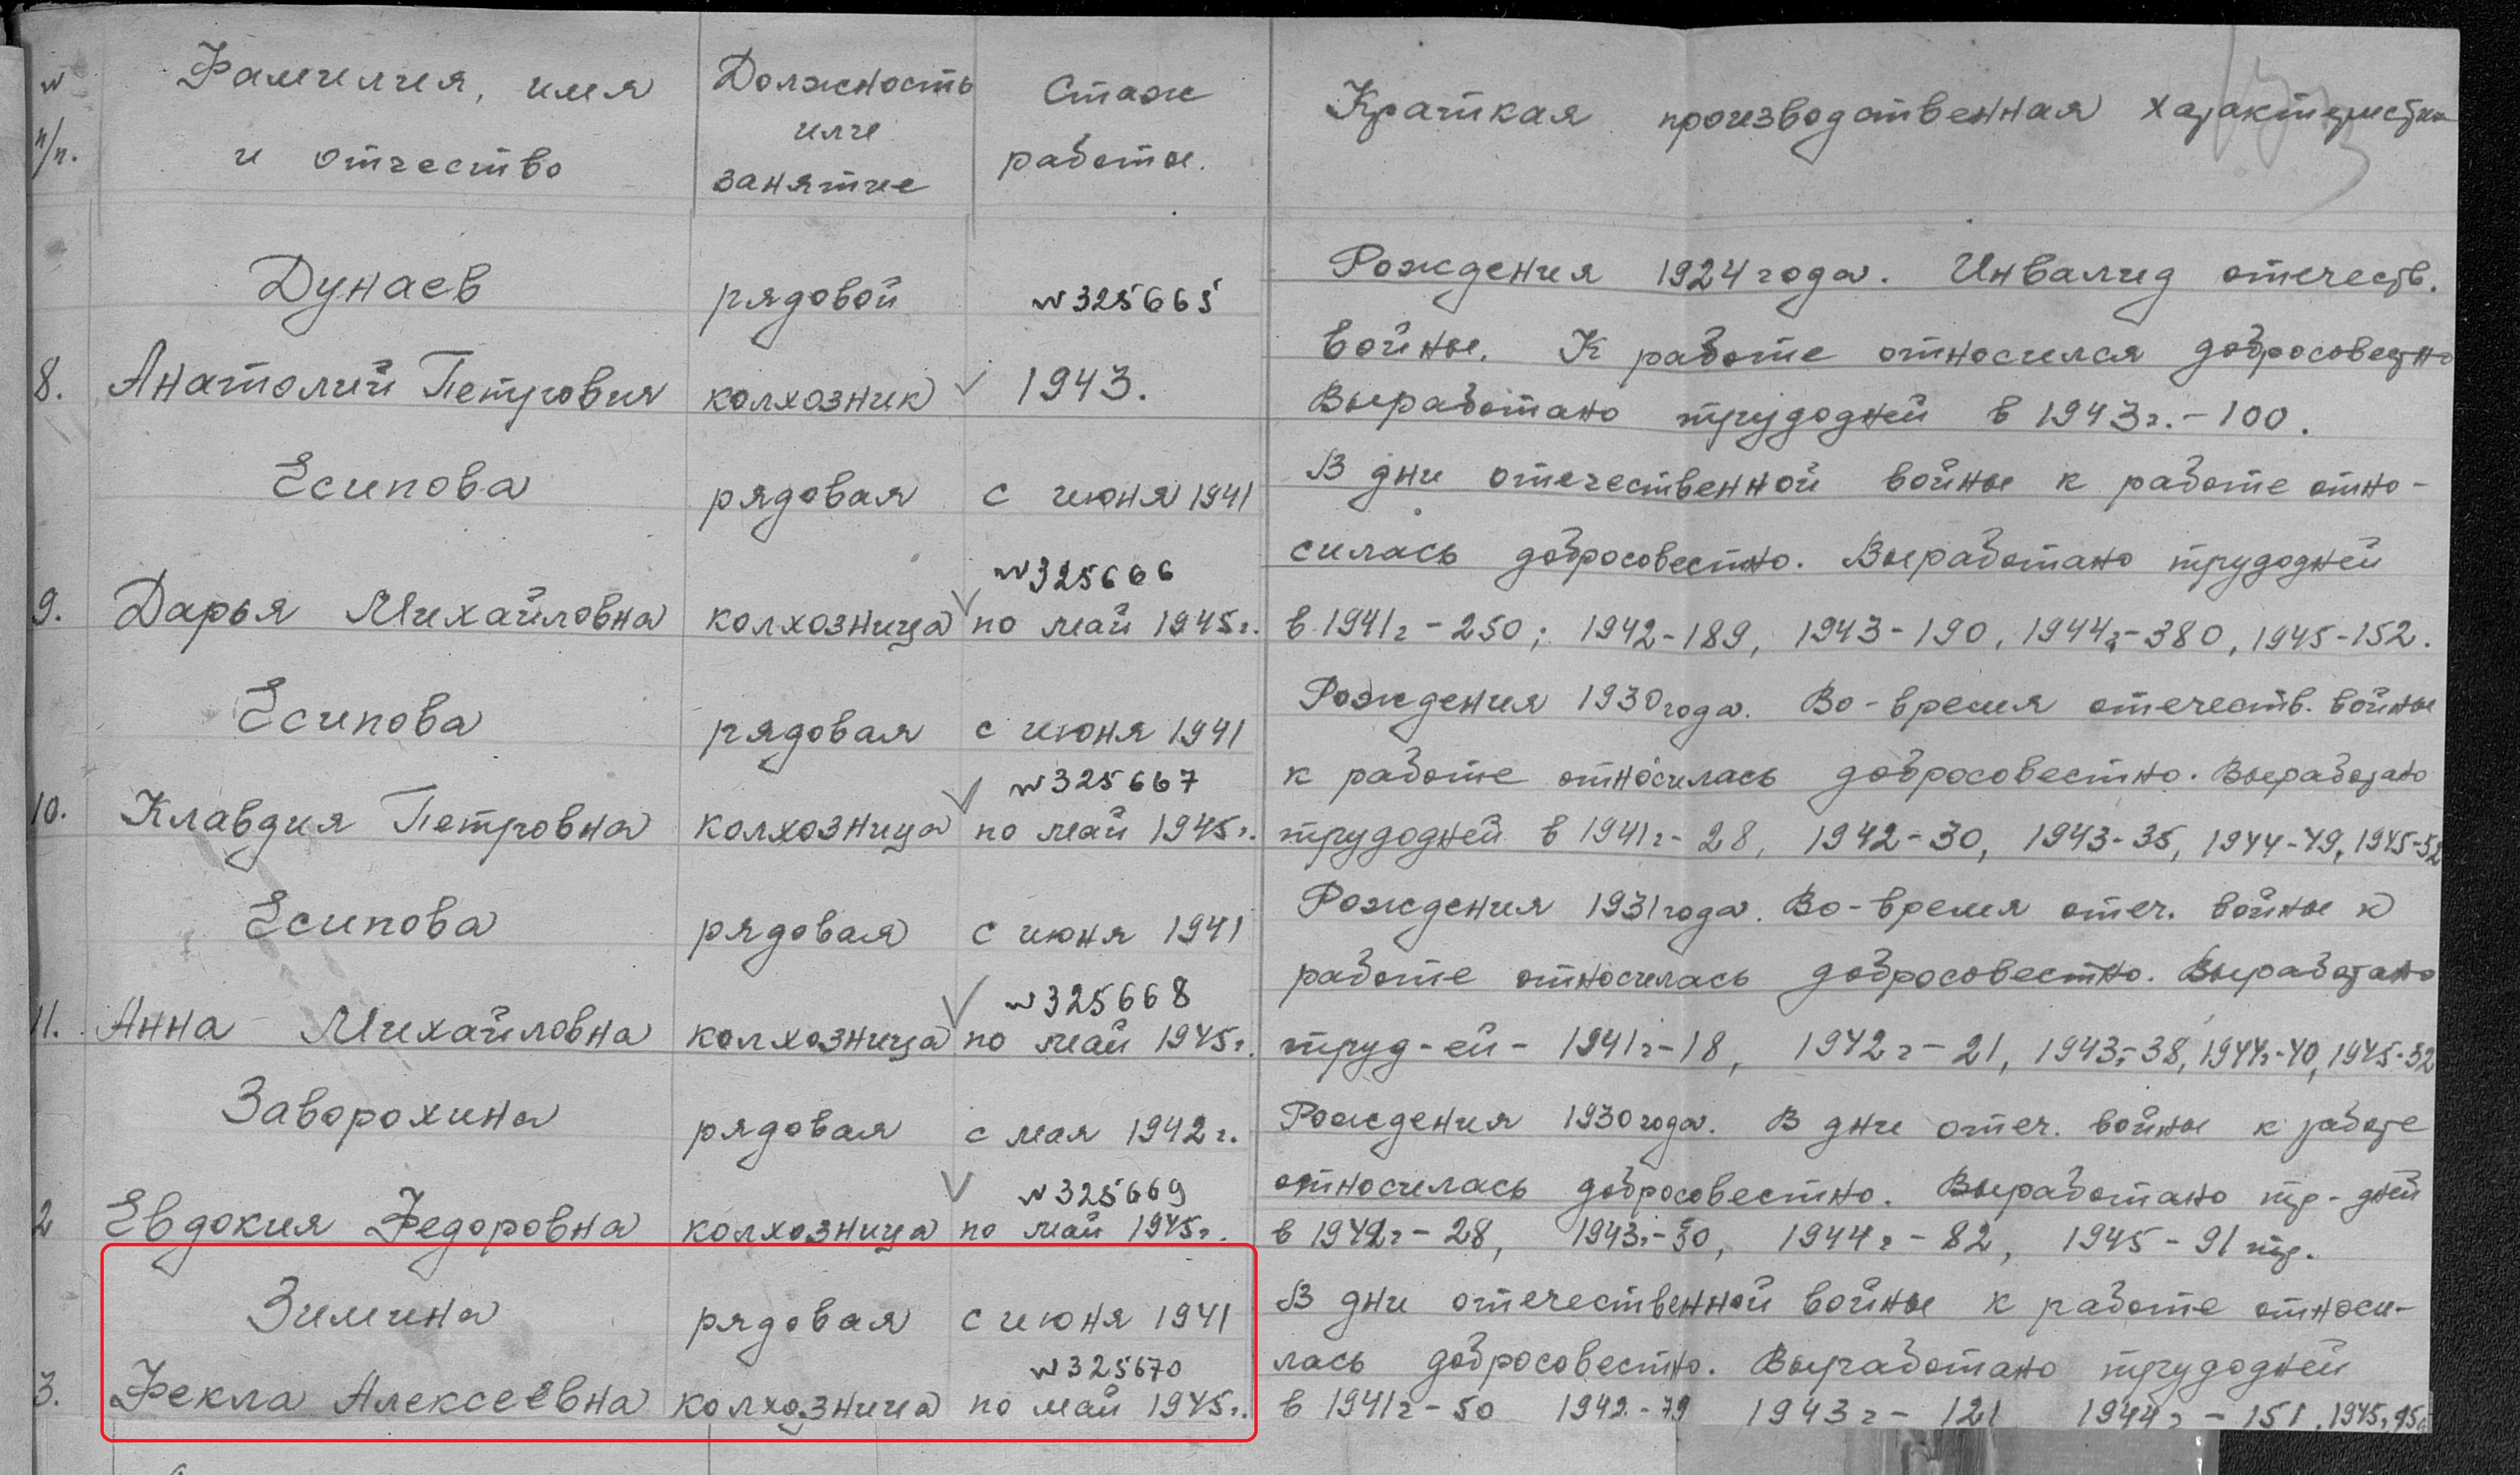 № п/п. Фамилия, имя и отчество Должность или занятие Стаж работы. Краткая производственная характеристик
Дунаев рядовой №325665 Рождения 1924 года. Инвалид отечеств.
войны. К работе относился добросовестно
8. Анатолий Петрович колхозник ✓ 1943. Выработано трудодней в 1943г.-100.
Есипова рядовая с июня 1941 В дни отечественной войны к работе отно-
№325666 силась добросовестно. Выработано трудодней
9. Дарья Михайловна колхозница ✓ по май 1945г. в 1941г-250; 1942-189, 1943-190, 1944г-380, 1945-152.
Есипова рядовая с июня 1941 Рождения 1930 года. Во-время отечеств. войны
№325667 к работе относилась добросовестно. Выработано
10. Клавдия Петровна колхозница ✓ по май 1945г. трудодней в 1941г-28, 1942-30, 1943-35, 1944-49, 1945-52
Есипова рядовая с июня 1941 Рождения 1931 года. Во-время отеч. войны к
№325668 работе относилась добросовестно. Выработано
11. Анна Михайловна колхозница ✓ по май 1945г. труд-ей- 1941г-18, 1942г-21, 1943г-38, 1944г-40, 1945-32
Заворохина рядовая с мая 1942г. Рождения 1930 года. В дни отеч. войны к работе
№325669 относилась добросовестно. Выработано тр-дней
2 Евдокия Федоровна колхозница ✓ по май 1945г. в 1942г-28, 1943г-30, 1944г-82, 1945-91 тр.
Зимина рядовая с июня 1941 В дни отечественной войны к работе относи-
№325670 лась добросовестно. Выработано трудодней
3. Фекла Алексеевна колхозница по май 1945г. в 1941г-50 1942-79 1943г-121 1944г-151, 1945г